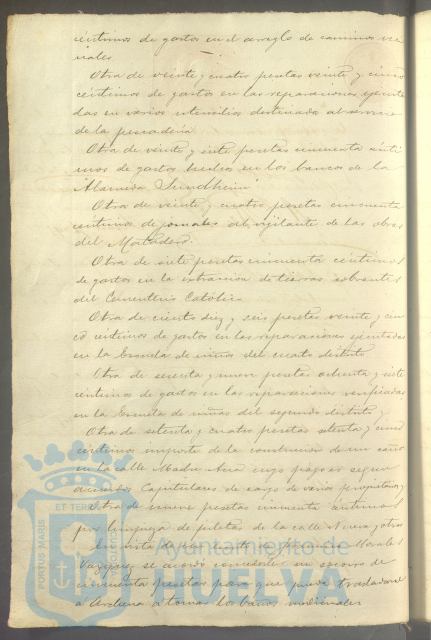 céntimos de gastos en el arreglo de caminos veci
nales.
Otra de veinte y cuatro pesetas veinte y cinco
céntimos de gastos en las reparaciones ejecuta
das en varios utensilios destinados al servicio
de la pescadería
Otra de veinte y siete pesetas cincuenta cénti
mos de gastos hechos en los bancos de la
Alameda Sundheim
Otra de veinte y cuatro pesetas cincuenta
céntimos de jornales del vigilante de las obras
del Matadero.
Otra de siete pesetas cincuenta céntimos
de gastos en la extracción de tierras sobrantes
del Cementerio Católico
Otra de ciento diez y seis pesetas veinte y cin
co céntimos de gastos en las reparaciones ejecutadas
en la Escuela de niños del cuarto distrito
Otra de sesenta y nueve pesetas ochenta y siete
céntimos de gastos en las reparaciones verificadas
en la Escuela de niñas del segundo distrito y
Otra de setenta y cuatro pesetas y cinco
céntimos importe de la construcción de un caño
en la calle Madre Ana cuyo pago es según
acuerdos Capitulares de cargo de varios propietarios y
Otra de nueve pesetas cincuenta céntimos
por limpieza de piletas de la calle Nueva y otras
Morales
Vazquez se acordó concederle un socorro de
cincuenta pesetas para que pueda trasladarse
á Archena a tomar los baños medicinales
PORTUS MARIS ET TERRAE CUSTODIA
Ayuntamiento de
HUELVA